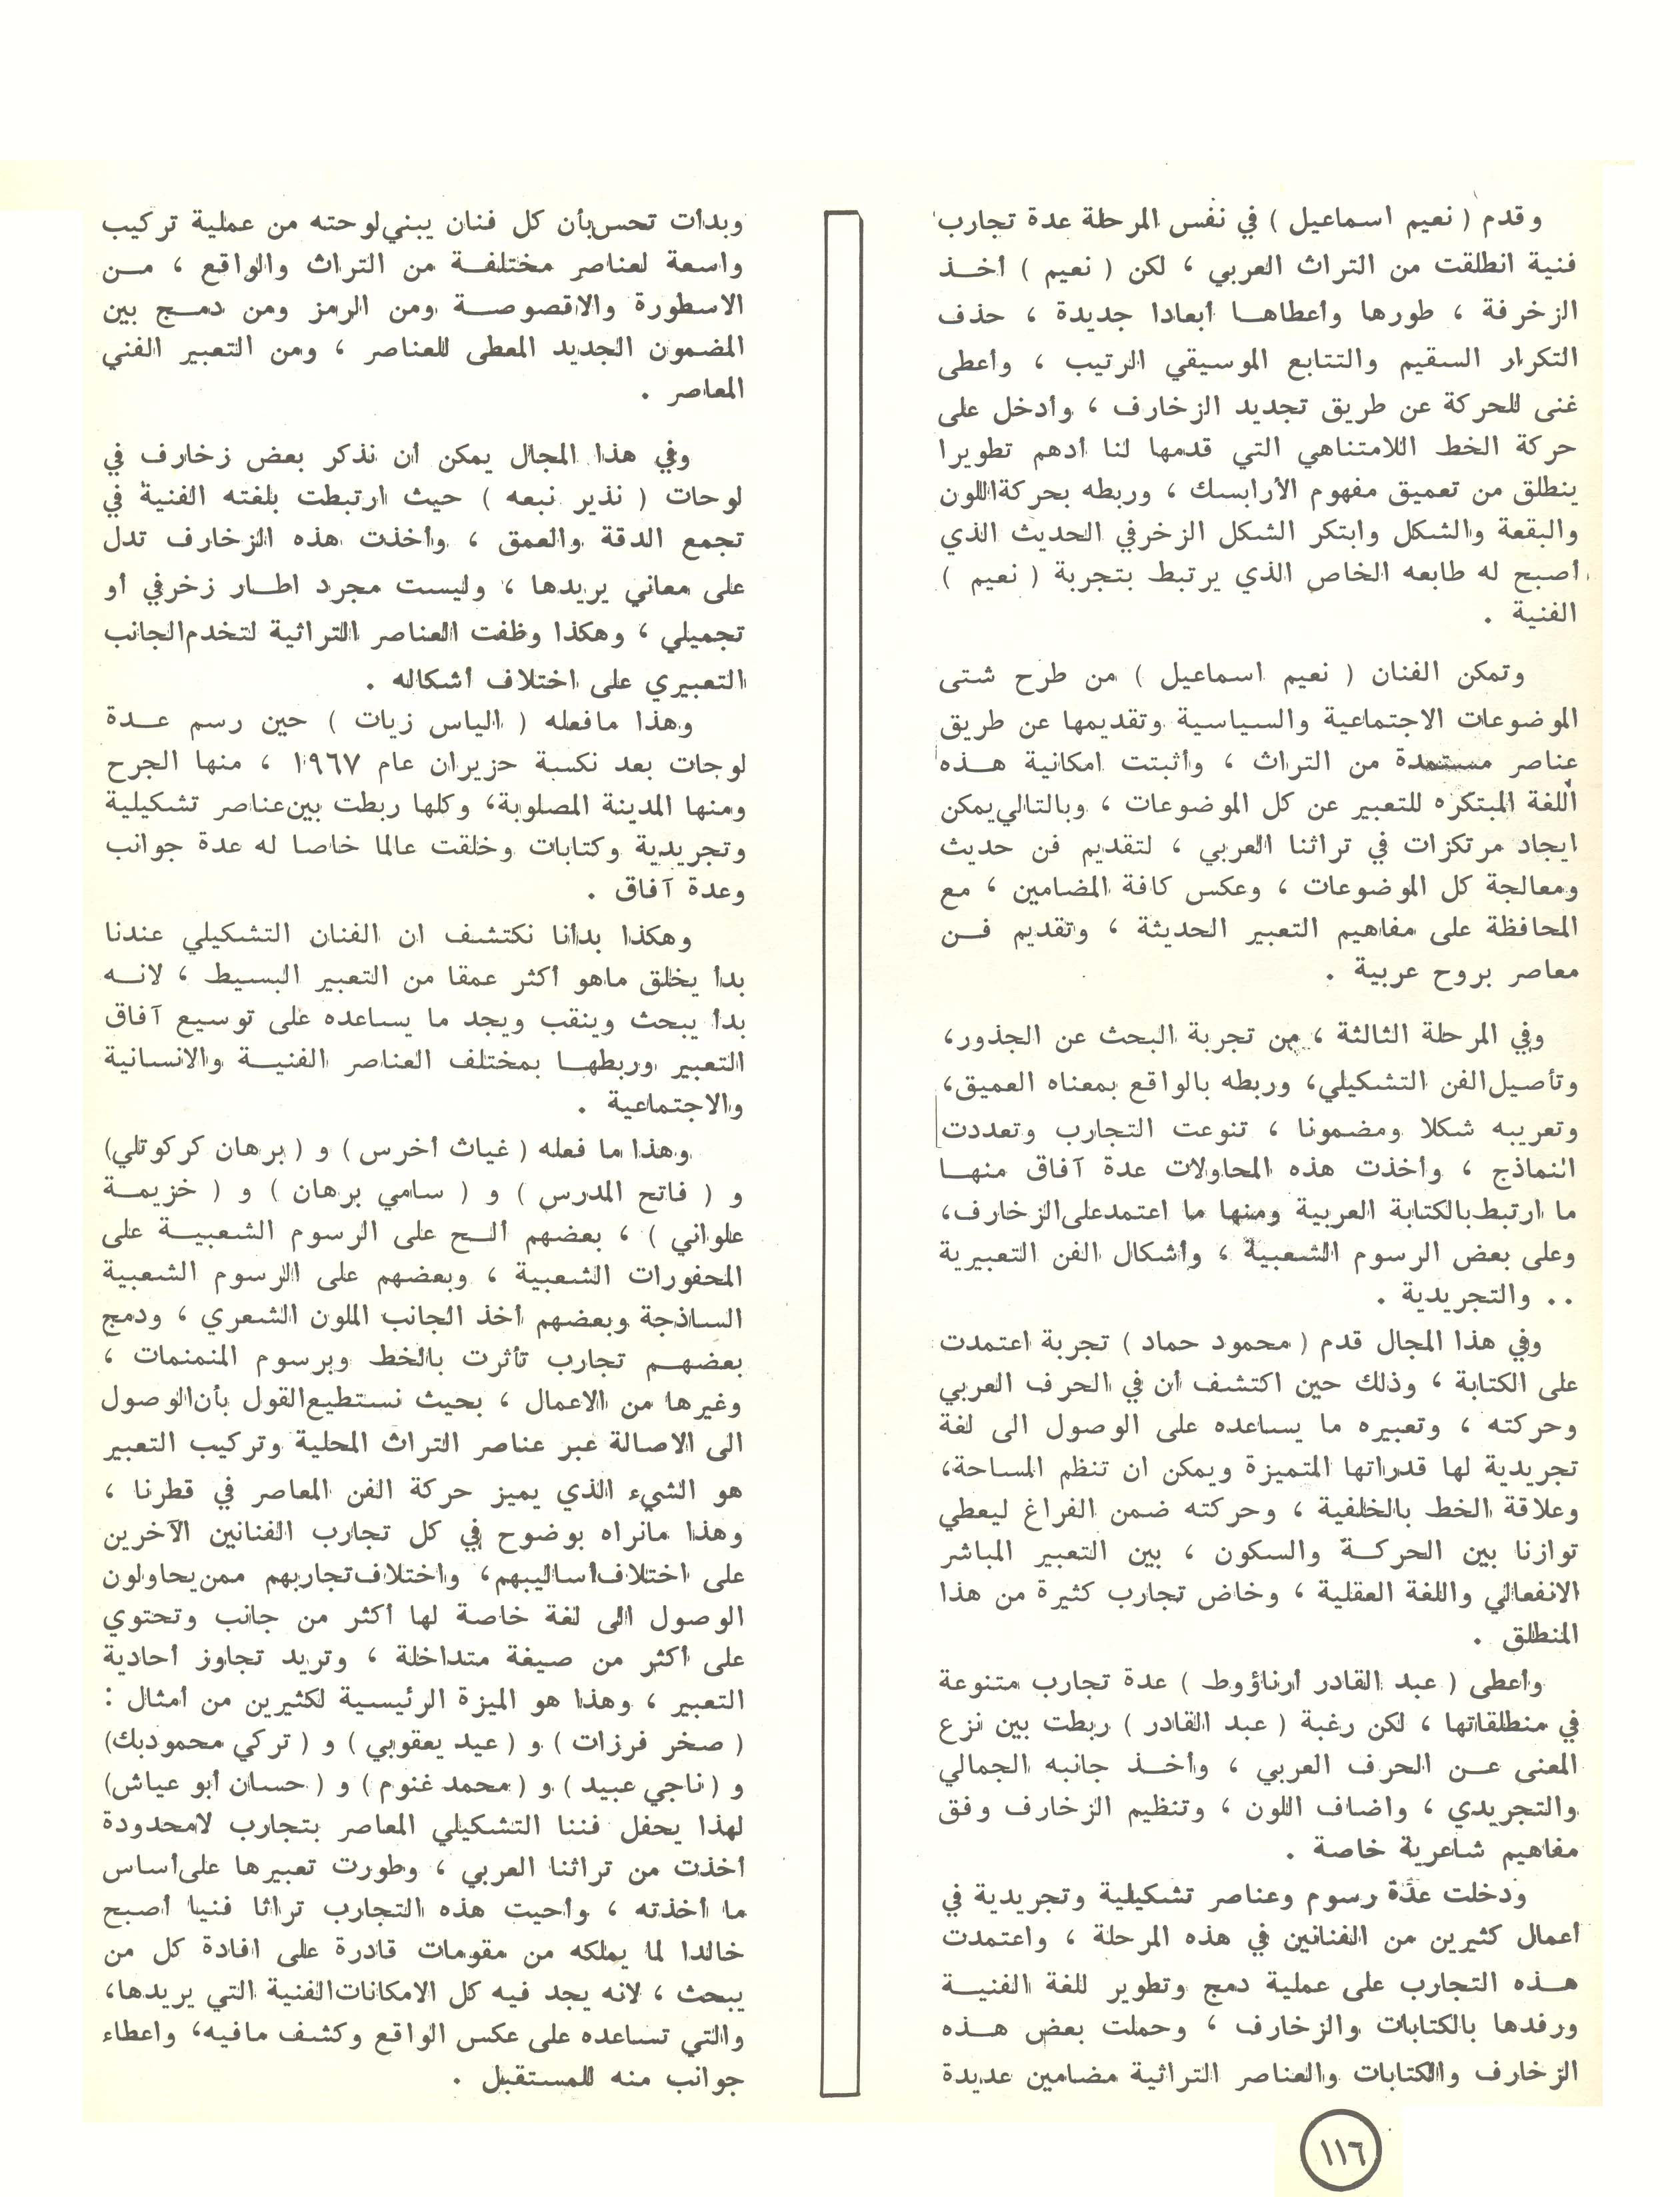 وقدم ( نعيم اسماعيل ) في نفس المرحلة عدة تجارب
فنية انطلقت من التراث العربي ، لكن ( نعيم ) أخـذ
الزخرفة ، طورها وأعطاهـا أبعادا جديدة ، حذف
التكرار السقيم والتتابع الموسيقي الرتيب ، وأعطى
غنى للحركة عن طريق تجديد الزخارف ، وأدخل على
حركة الخط اللامتناهي التي قدمها لنا أدهم تطويرا
ينطلق من تعميق مفهوم الأرابسك ، وربطه بحركة اللون
والبقعة والشكل وابتكر الشكل الزخرفي الحديث الذي
أصبح له طابعه الخاص الذي يرتبط بتجربة ( نعيم )
الفنية .
وتمكن الفنان ( نعيم اسماعيل ) من طرح شتى
الموضوعات الاجتماعية والسياسية وتقديمها عن طريق
عناصر مستمدة من التراث ، وأثبتت امكانية هـذه
اللغة المبتكره للتعبير عن كل الموضوعات ، وبالتالي يمكن
ايجاد مرتكزات في تراثنا العربي ، لتقديم فن حديث
ومعالجة كل الموضوعات ، وعكس كافة المضامين ، مع
المحافظة على مفاهيم التعبير الحديثة ، وتقديم فـن
معاصر بروح عربية .
وفي المرحلة الثالثة ، من تجربة البحث عن الجذور،
وتأصيل الفن التشكيلي، وربطه بالواقع بمعناه العميق،
وتعريبه شكلا ومضمونا ، تنوعت التجارب وتعددت
النماذج ، وأخذت هذه المحاولات عدة آفاق منهـا
ما ارتبط بالكتابة العربية ومنها ما اعتمد على الزخارف،
وعلى بعض الرسوم الشعبية ، وأشكال الفن التعبيرية
.. والتجريدية .
وفي هذا المجال قدم ( محمود حماد ) تجربة اعتمدت
على الكتابة ، وذلك حين اكتشف أن في الحرف العربي
وحركته ، وتعبيره ما يساعده على الوصول الى لغة
تجريدية لها قدراتها المتميزة ويمكن ان تنظم المساحة،
وعلاقة الخط بالخلفية ، وحركته ضمن الفراغ ليعطي
توازنا بين الحركـة والسكون ، بين التعبير المباشر
الانفعالي واللغة العقلية ، وخاض تجارب كثيرة من هذا
المنطلق .
وأعطى ( عبد القادر أرناؤوط ) عدة تجارب متنوعة
في منطلقاتها ، لكن رغبة ( عبد القادر ) ربطت بين نزع
المعنى عـن الحرف العربي ، وأخـذ جانبه الجمالي
والتجريدي ، واضاف اللون ، وتنظيم الزخارف وفق
مفاهيم شاعرية خاصة .
ودخلت عدة رسوم وعناصر تشكيلية وتجريدية في
أعمال كثيرين من الفنانين في هذه المرحلة ، واعتمدت
هـذه التجارب على عملية دمج وتطوير للغة الفنيـة
ورفدها بالكتابات والزخارف ، وحملت بعض هـذه
الزخارف والكتابات والعناصر التراثية مضامين عديدة
وبدأت تحس بأن كل فنان يبني لوحته من عملية تركيب
واسعة لعناصر مختلفـة من التراث والواقع ، مـن
الاسطورة والاقصوصـة ومن الرمز ومن دمـج بين
المضمون الجديد المعطى للعناصر ، ومن التعبير الفني
المعاصر .
وفي هذا المجال يمكن أن نذكر بعض زخارف في
لوحات ( نذير نبعه ) حيث ارتبطت بلغته الفنية في
تجمع الدقة والعمق ، وأخذت هذه الزخارف تدل
على معاني يريدها ، وليست مجرد اطـار زخرفي أو
تجميلي ، وهكذا وظفت العناصر التراثية لتخدم الجانب
التعبيري على اختلاف أشكاله .
وهذا مافعله ( الياس زيات ) حين رسم عـدة
لوحات بعد نكسة حزيران عام ١٩٦٧ ، منها الجرح
ومنها المدينة المصلوبة، وكلها ربطت بين عناصر تشكيلية
وتجريدية وكتابات وخلقت عالما خاصا له عدة جوانب
وعدة آفاق .
وهكذا بدأنا نكتشف ان الفنان التشكيلي عندنا
بدأ يخلق ماهو أكثر عمقا من التعبير البسيط ، لانـه
بدأ يبحث وينقب ويجد ما يساعده على توسيع آفاق
التعبير وربطهـا بمختلف العناصر الفنيـة والانسانية
والاجتماعية .
وهذا ما فعله ( غياث أخرس ) و ( برهان كركوتلي)
و ( فاتح المدرس ) و ( سامي برهان ) و ( خزيمـة
علواني ) ، بعضهم الـح على الرسوم الشعبيـة على
المحفورات الشعبية ، وبعضهم على الرسوم الشعبية
الساذجة وبعضهم أخذ الجانب الملون الشعري ، ودمج
بعضهـم تجارب تأثرت بالخط وبرسوم المنمنمات ،
وغيرها من الاعمال ، بحيث نستطيع القول بأن الوصول
الى الاصالة عبر عناصر التراث المحلية وتركيب التعبير
هو الشيء الذي يميز حركة الفن المعاصر في قطرنا ،
وهذا مانراه بوضوح في كل تجارب الفنانين الآخرين
على اختلاف أساليبهم، واختلاف تجاربهم ممن يحاولون
الوصول الى لغة خاصة لها أكثر من جانب وتحتوي
على أكثر من صيغة متداخلة ، وتريد تجاوز أحادية
التعبير ، وهذا هو الميزة الرئيسية لكثيرين من أمثال :
( صخر فرزات ) و ( عيد يعقوبي ) و ( تركي محمود بك)
و ( ناجي عبيد ) و ( محمد غنوم ) و ( حسان أبو عياش)
لهذا يحفل فننا التشكيلي المعاصر بتجارب لامحدودة
أخذت من تراثنا العربي ، وطورت تعبيرها على أساس
ما أخذته ، وأحيت هذه التجارب تراثا فنيا أصبح
خالدا لما يملكه من مقومات قادرة على افادة كل من
يبحث ، لانه يجد فيه كل الامكانات الفنية التي يريدها،
والتي تساعده على عكس الواقع وكشف مافيه، واعطاء
جوانب منه للمستقبل .
١١٦